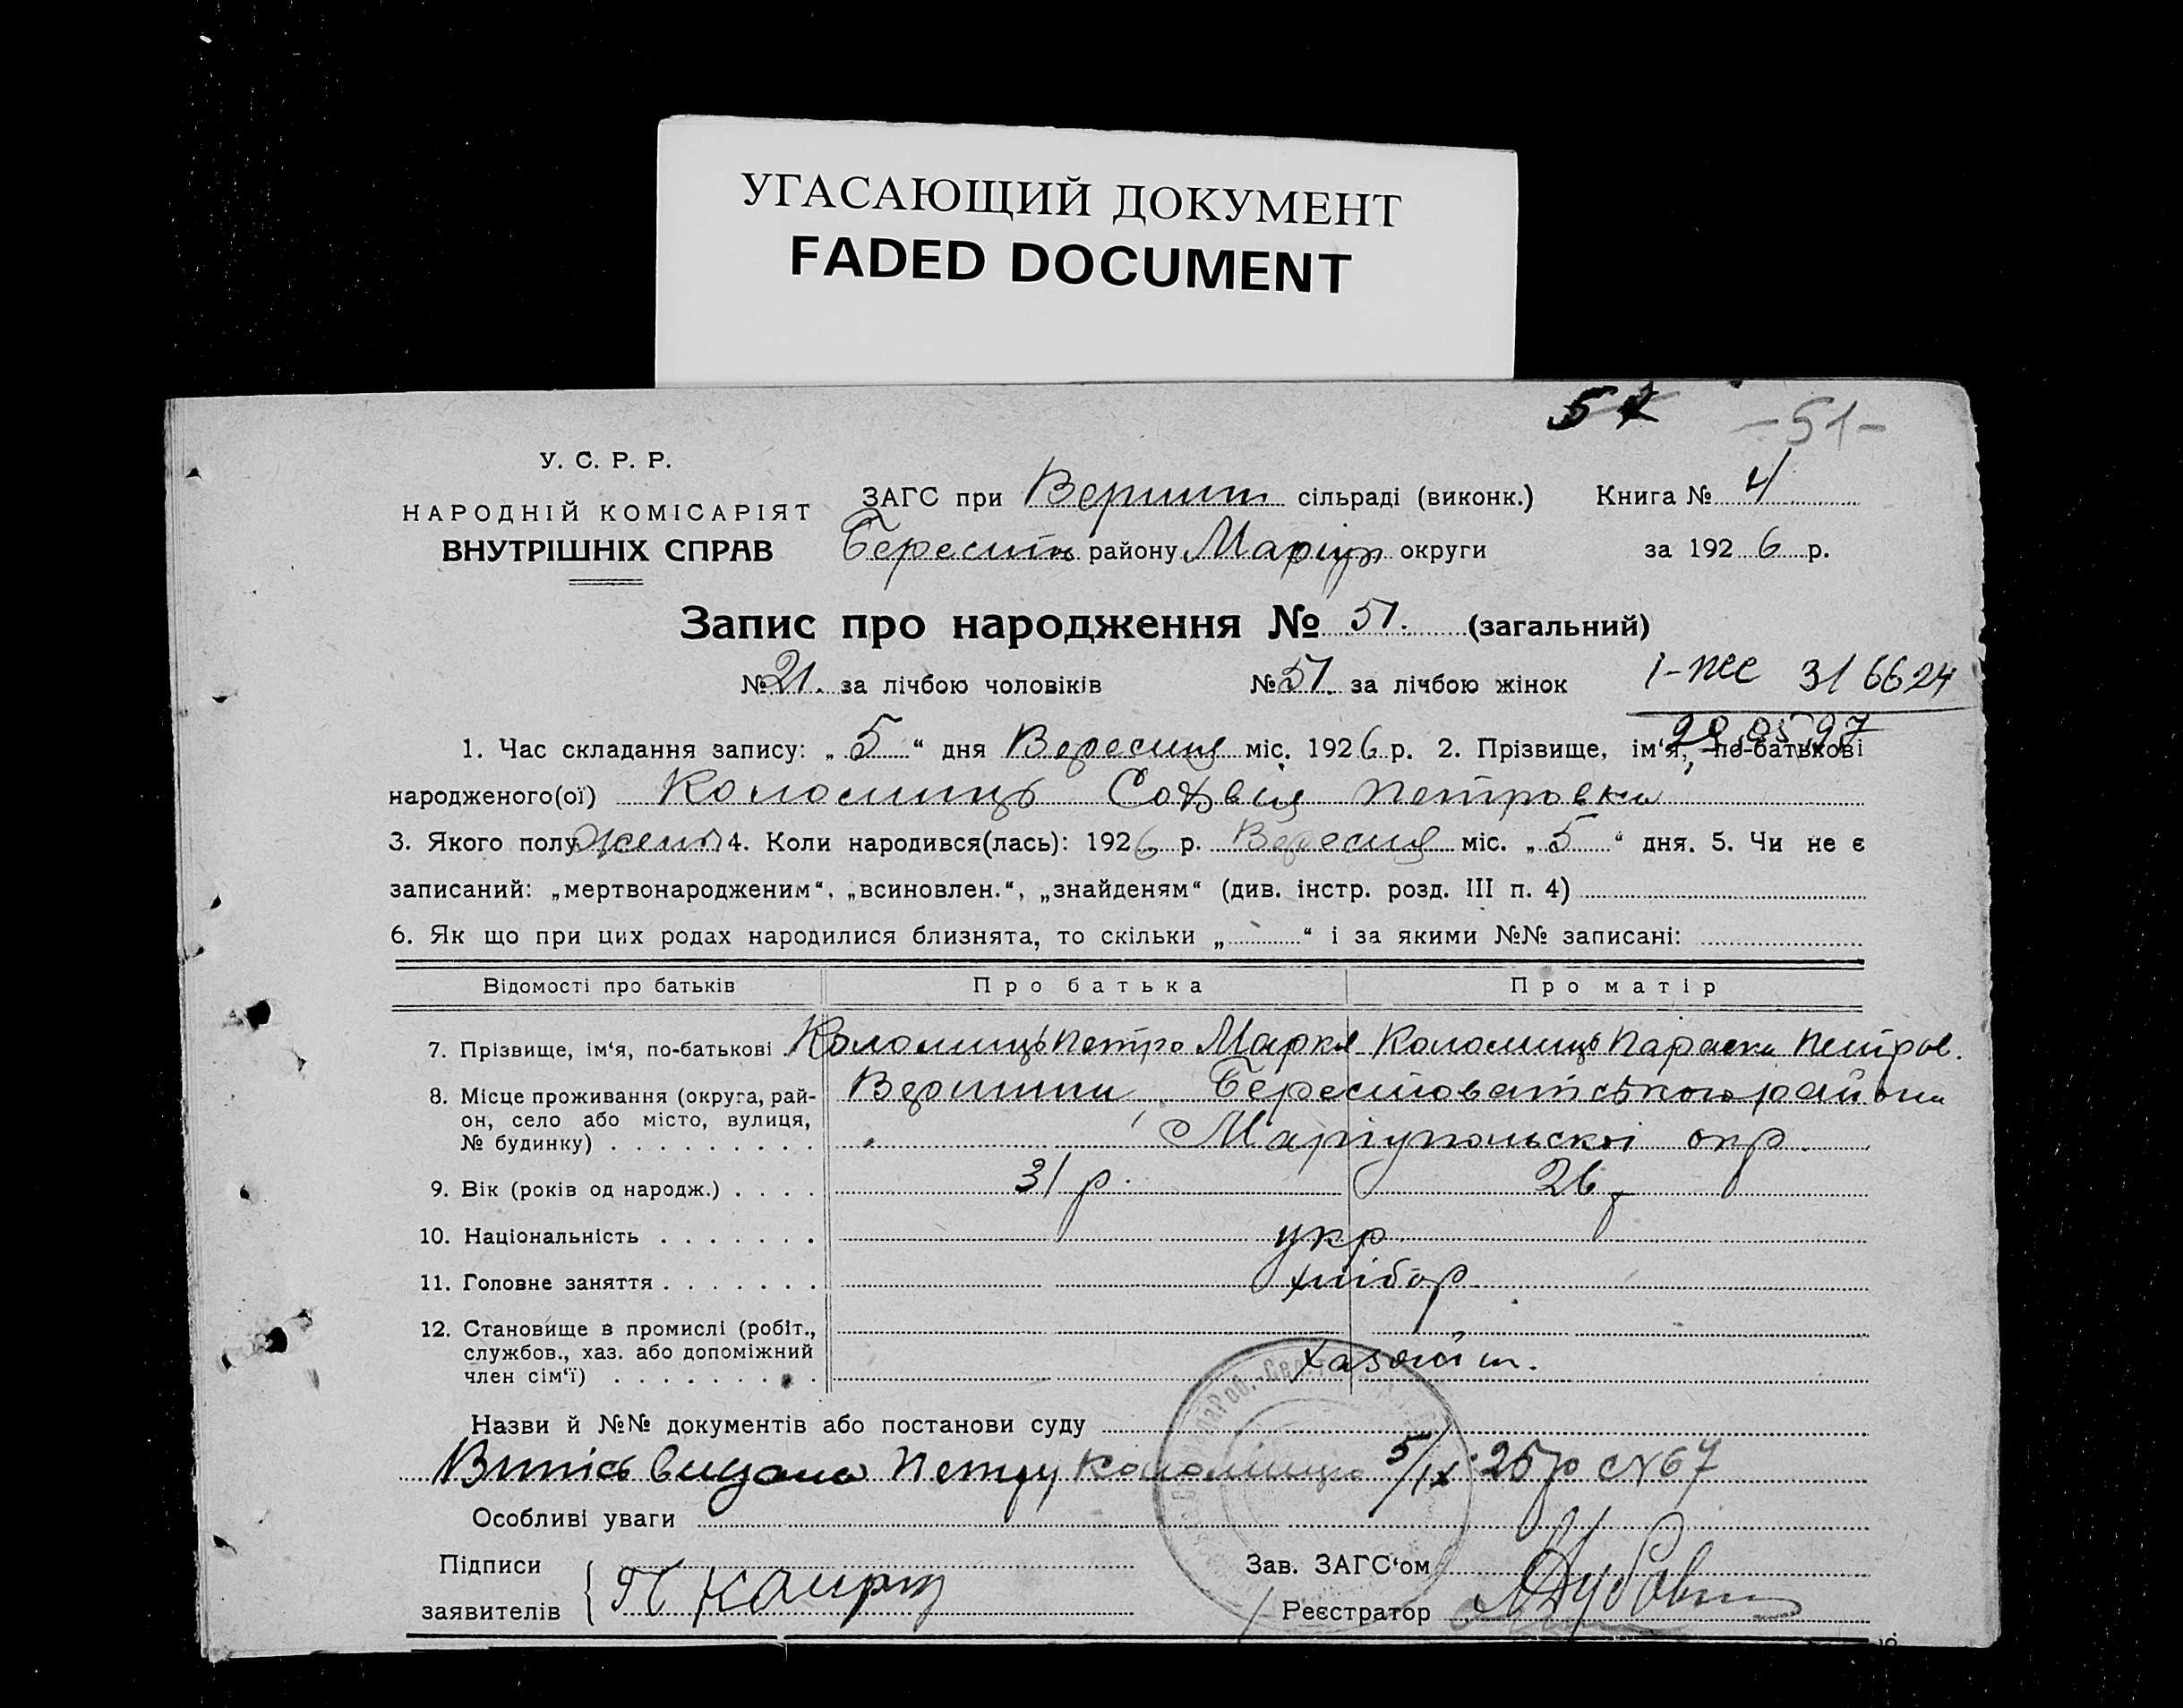 УГАСАЮЩИЙ ДОКУМЕНТ
FADED DOCUMENT
-51-
У. С. Р. Р.
НАРОДНІЙ КОМІСАРІЯТ
ВНУТРІШНІХ СПРАВ
ЗАГС при Вершит сільраді (виконк.) Книга № 4
Берестів району Маріуп округи за 1926 р.
Запис про народження № 51. (загальний)
№ 21. за лічбою чоловіків № 51. за лічбою жінок
І-ЖС 316624
20.05.97
1. Час складання запису: „5“ дня Вересня міс. 1926 р. 2. Прізвище, ім‘я, по-батькові
народженого(ої) Коломиць Софвія Петровки
3. Якого полу жено 4. Коли народився(лась): 1926 р. Вересня міс. „5“ дня. 5. Чи не є
записаний: „мертвонародженим“, „всиновлен.“, „знайденям“ (див. інстр. розд. III п. 4)
6. Як що при цих родах народилися близнята, то скільки „ “ і за якими №№ записані:
Відомості про батьків Про батька Про матір
7. Прізвище, ім‘я, по-батькові Коломиць Петро Марков Коломиць Параска Петров.
8. Місце проживання (округа, рай-
он, село або місто, вулиця,
№ будинку)
Вершини Берестоватського района
Маріупольскоі окр.
9. Вік (років од народж.) 31 р. 26
10. Національність укр
11. Головне заняття хлібор
12. Становище в промислі (робіт.,
службов., хаз. або допоміжний
член сім‘ї)
хазяїн.
Назви й №№ документів або постанови суду
Витісь видана Петру Коломицю 5/IX 25р №67
Особливі уваги
Підписи
заявителів
Зав. ЗАГС‘ом
Реєстратор